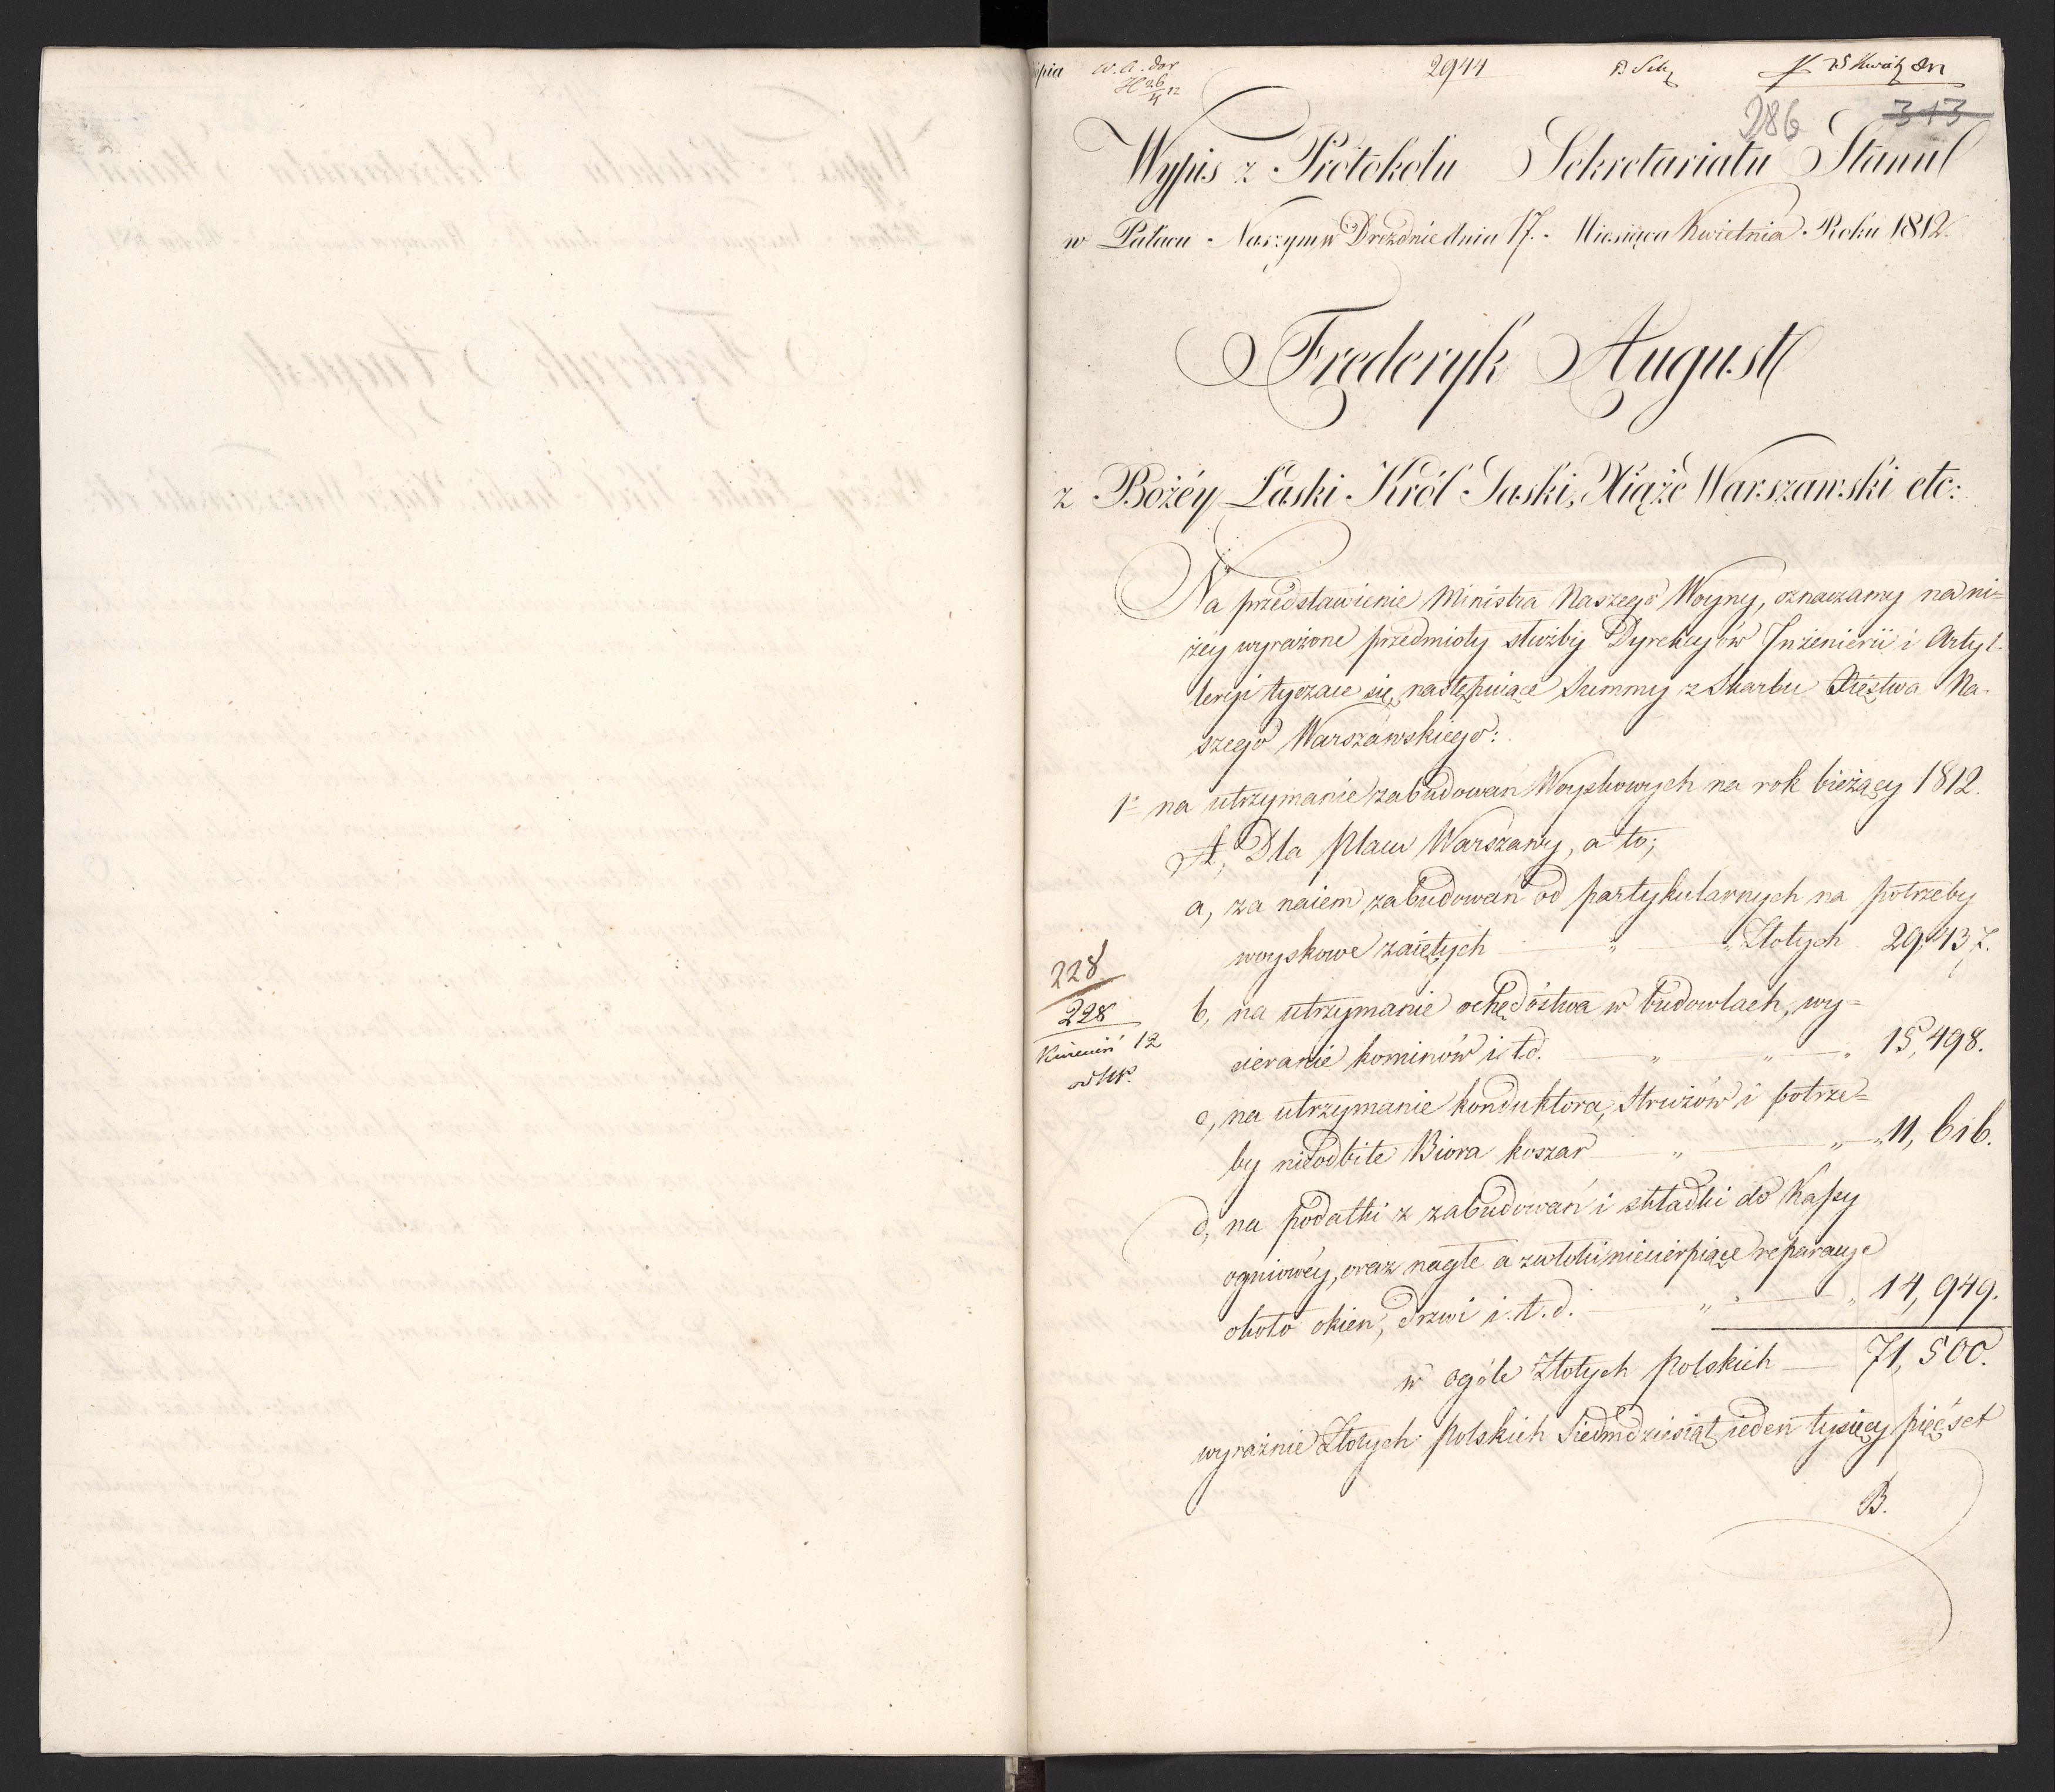 2944
286 313
Wypis z Protokołu Sekretariatu Stanu
w Pałacu Naszym w Dreźdnie dnia 17. Miesiąca Kwietnia Roku 1812.
Frederyk August
z Bożéy Łaski Król Saski, Xiąże Warszawski etc:
Na przedstawienie Ministra Naszego Woyny, oznaczamy na ni=
żéy wyrażone przedmioty służby Dyrekcyów Inżenierii i Artyl-
leryi tyczące się, następuiące Summy z Skarbu Xięstwa Na-
szego Warszawskiego:
1° na utrzymanie zabudowań Woyskowych na rok bieżący 1812.
A, Dla placu Warszawy, a to;
a, za naiem zabudowań od partykularnych na potrzeby
woyskowe zaiętych — " — " Złotych 29,437.
228
228
Kwiecień 12
b, na utrzymanie ochędóstwa w budowlach, wy=
cieranie kominów i t.d. — " — " — " 15,498.
c, na utrzymanie konduktora, Stróżów i potrze=
by nieodbite Biora koszar — " — " — " 11,616.
d, na podatki z zabudowań i składki do Kassy
ogniowéy, oraz nagłe a zwłoki niecierpiące reparacye
około okien, drzwi i.t.d. — " — " 14,949.
w ogóle Złotych polskich — 71,500.
wyraźnie Złotych polskich Siedmdziesiąt ieden tysięcy pięćset
B.